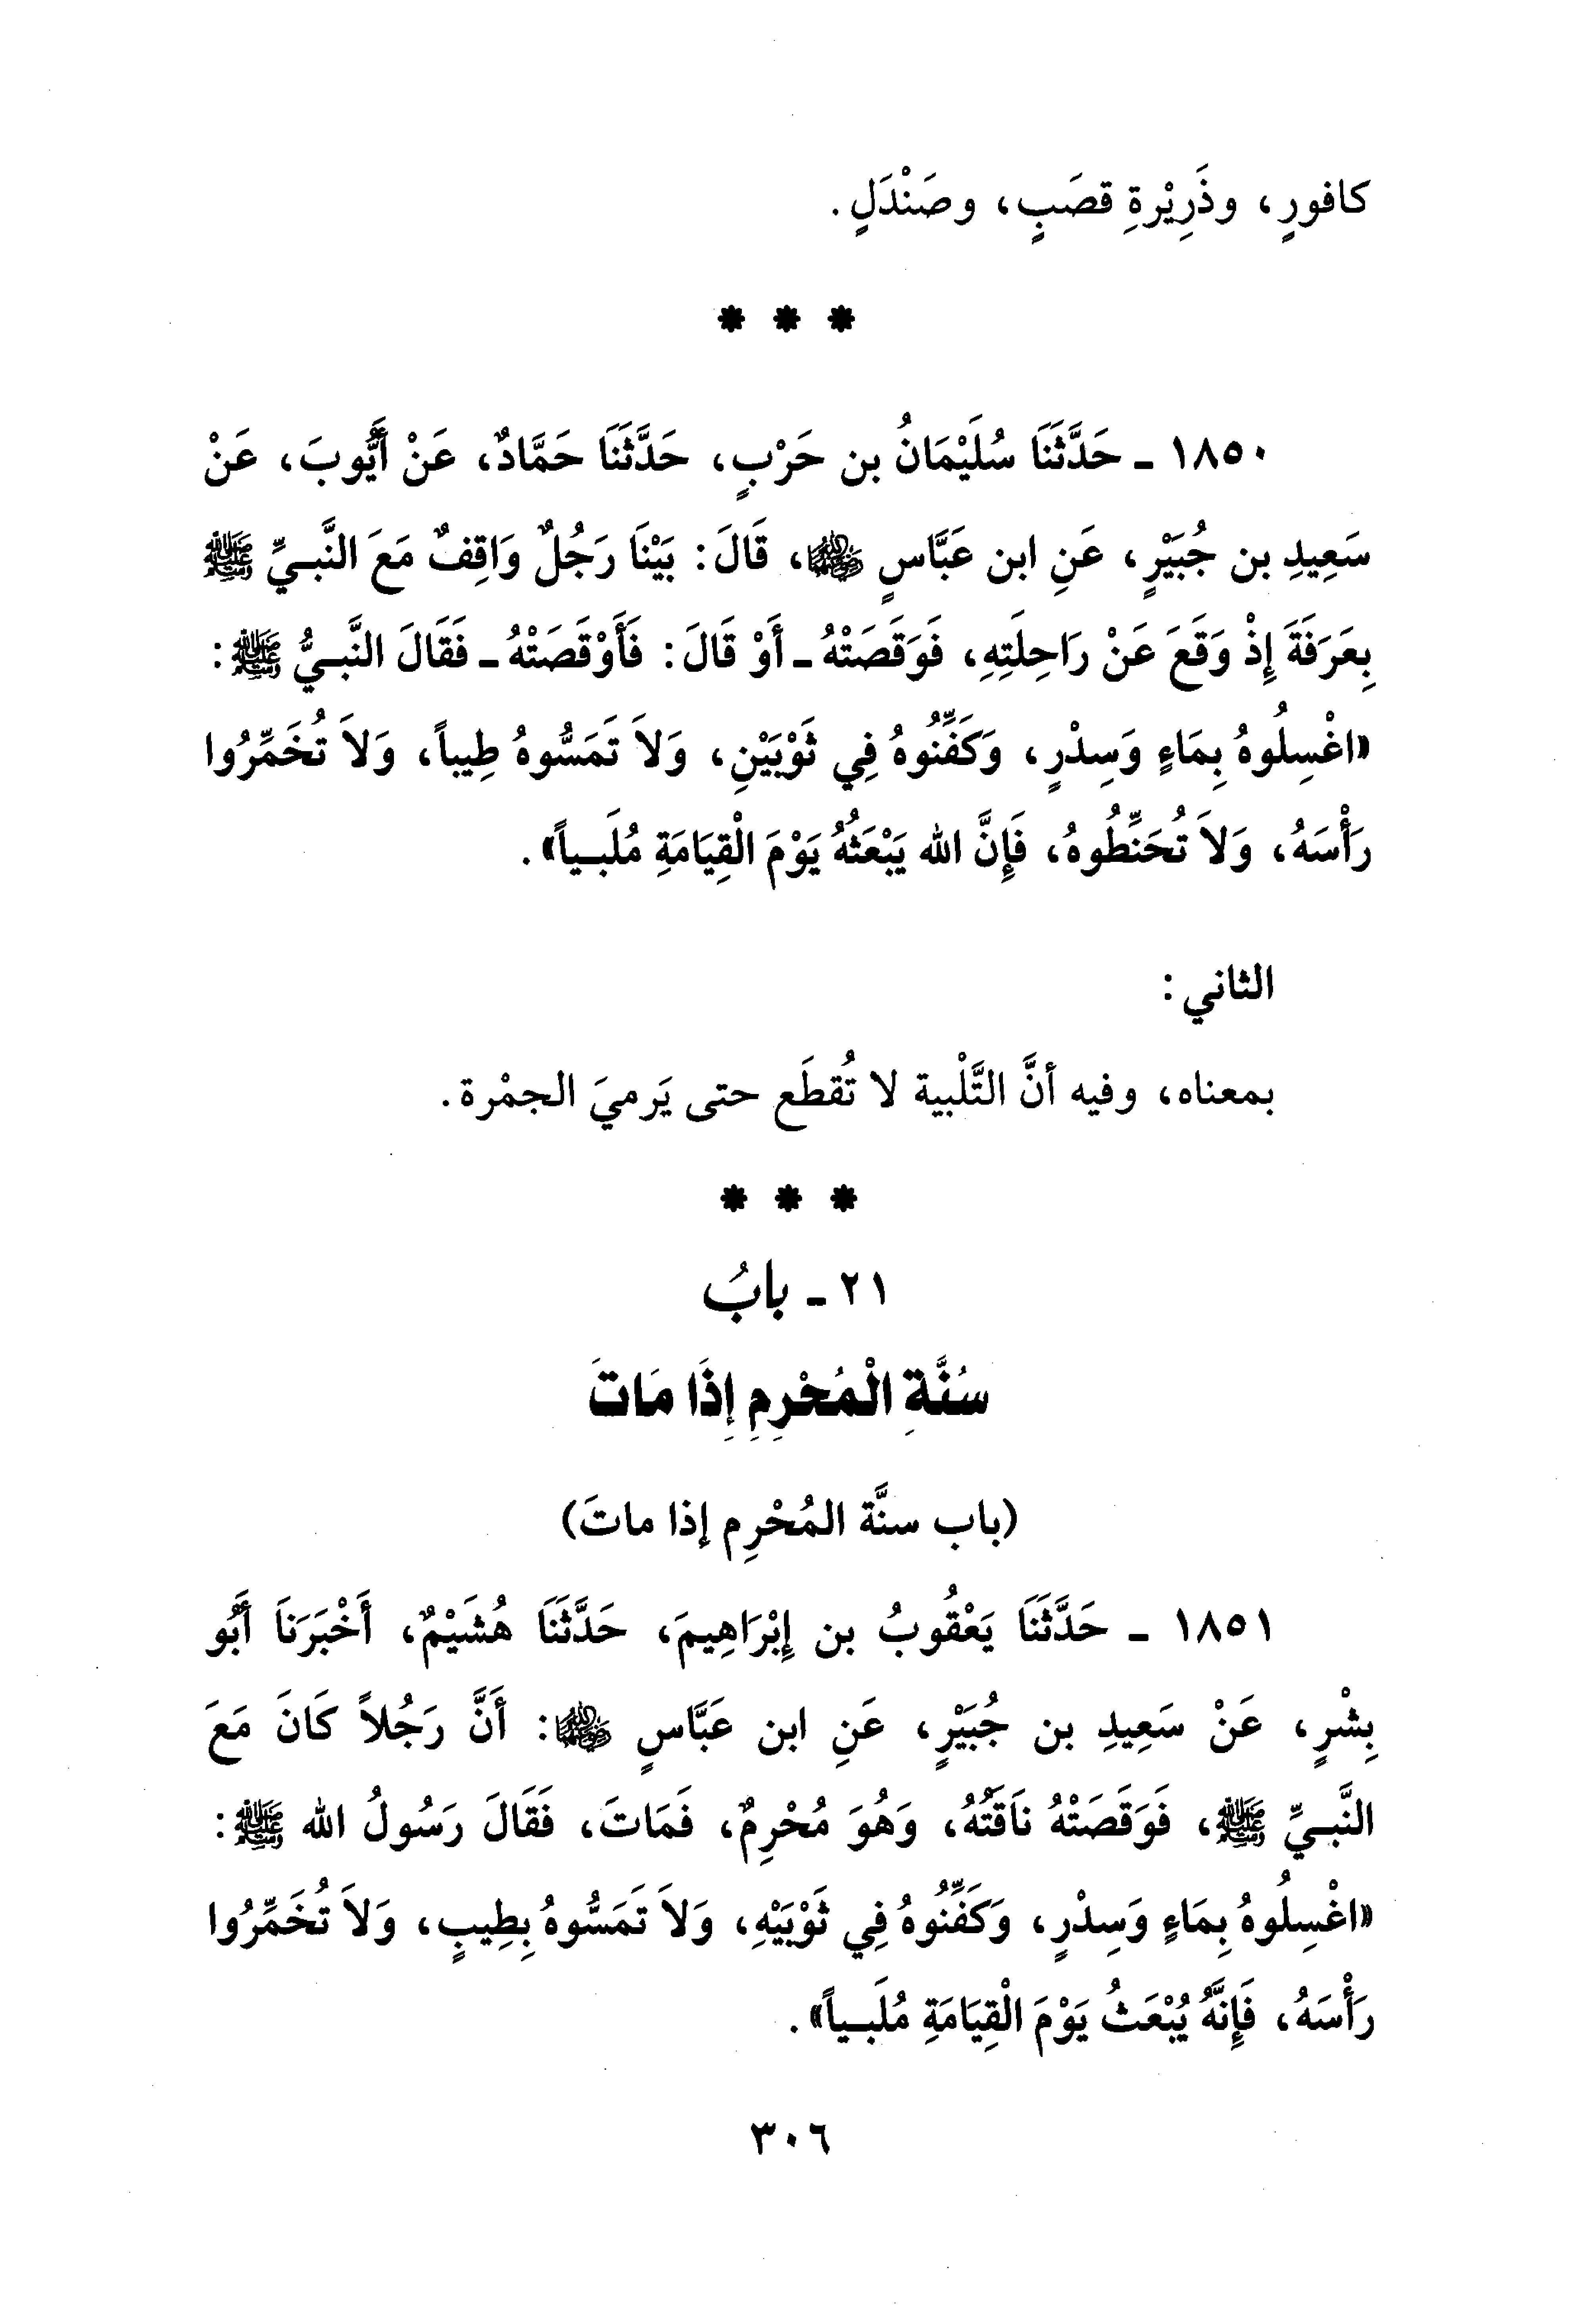 كافورٍ، وذَرِيْرةِ قصَبٍ، وصَنْدَلٍ.
* * *
١٨٥٠ - حَدَّثَنَا سُلَيْمَانُ بن حَرْبٍ، حَدَّثَنَا حَمَّادٌ، عَنْ أَيُّوبَ، عَنْ
سَعِيدِ بن جُبَيْرٍ، عَنِ ابن عَبَّاسٍ رضي الله عنهما، قَالَ: بَيْنَا رَجُلٌ وَاقِفٌ مَعَ النَّبِيِّ ﷺ
بِعَرَفَةَ إِذْ وَقَعَ عَنْ رَاحِلَتِهِ، فَوَقَصَتْهُ - أَوْ قَالَ: فَأَوْقَصَتْهُ - فَقَالَ النَّبِيُّ ﷺ:
«اغْسِلُوهُ بِمَاءٍ وَسِدْرٍ، وَكَفِّنُوهُ فِي ثَوْبَيْنِ، وَلاَ تَمَسُّوهُ طِيباً، وَلاَ تُخَمِّرُوا
رَأْسَهُ، وَلاَ تُحَنِّطُوهُ، فَإِنَّ الله يَبْعَثُهُ يَوْمَ الْقِيَامَةِ مُلَبياً».
الثاني:
بمعناه، وفيه أنَّ التَّلْبية لا تُقطَع حتى يَرميَ الجمْرة.
* * *
٢١ - بابُ
سُنَّةِ الْمُحْرِمِ إِذَا مَاتَ
(باب سنَّة المُحْرِم إذا ماتَ)
١٨٥١ - حَدَّثَنَا يَعْقُوبُ بن إِبْرَاهِيمَ، حَدَّثَنَا هُشَيْمٌ، أَخْبَرَنَا أَبُو
بِشْرٍ، عَنْ سَعِيدِ بن جُبَيْرٍ، عَنِ ابن عَبَّاسٍ رضي الله عنهما: أَنَّ رَجُلاً كَانَ مَعَ
النَّبِيِّ ﷺ، فَوَقَصَتْهُ نَاقَتُهُ، وَهُوَ مُحْرِمٌ، فَمَاتَ، فَقَالَ رَسُولُ الله ﷺ:
«اغْسِلُوهُ بِمَاءٍ وَسِدْرٍ، وَكَفِّنُوهُ فِي ثَوْبَيْهِ، وَلاَ تَمَسُّوهُ بِطِيبٍ، وَلاَ تُخَمِّرُوا
رَأْسَهُ، فَإِنَّهُ يُبْعَثُ يَوْمَ الْقِيَامَةِ مُلَبياً».
٣٠٦